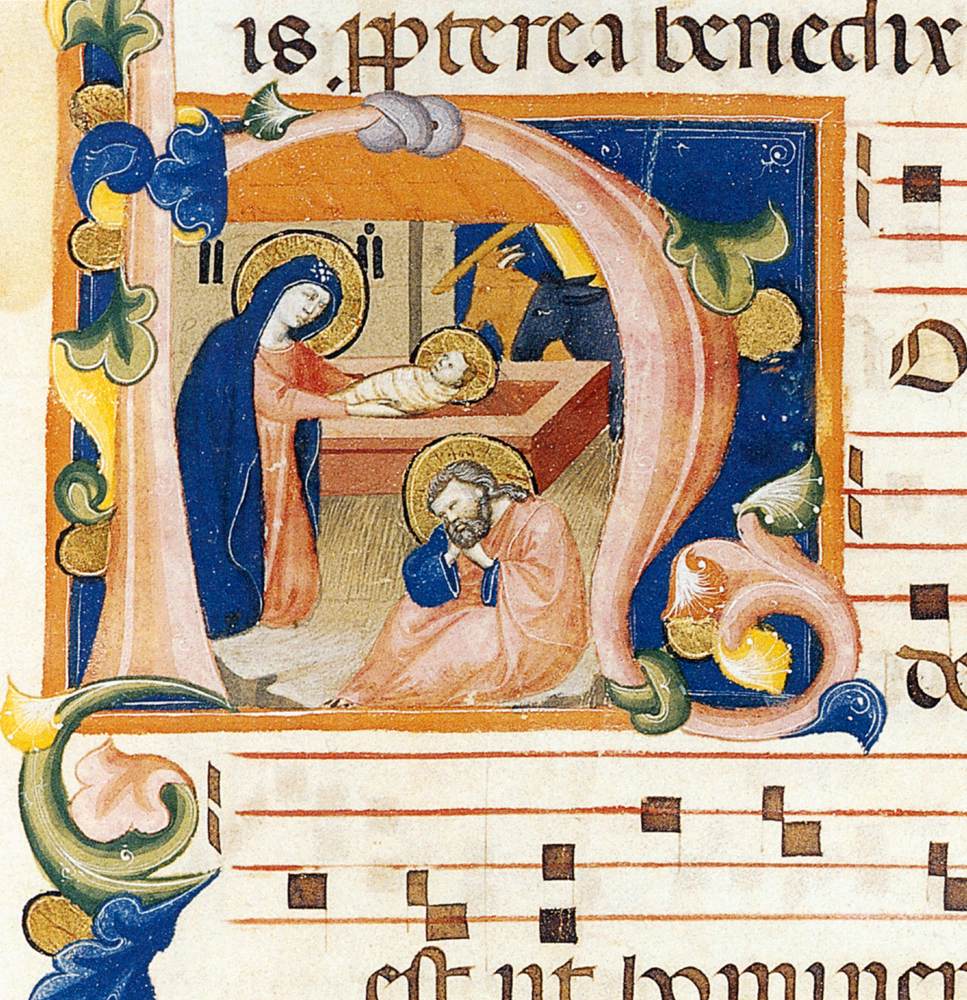 is ppterea benedix
H
D
de
est ut hominem